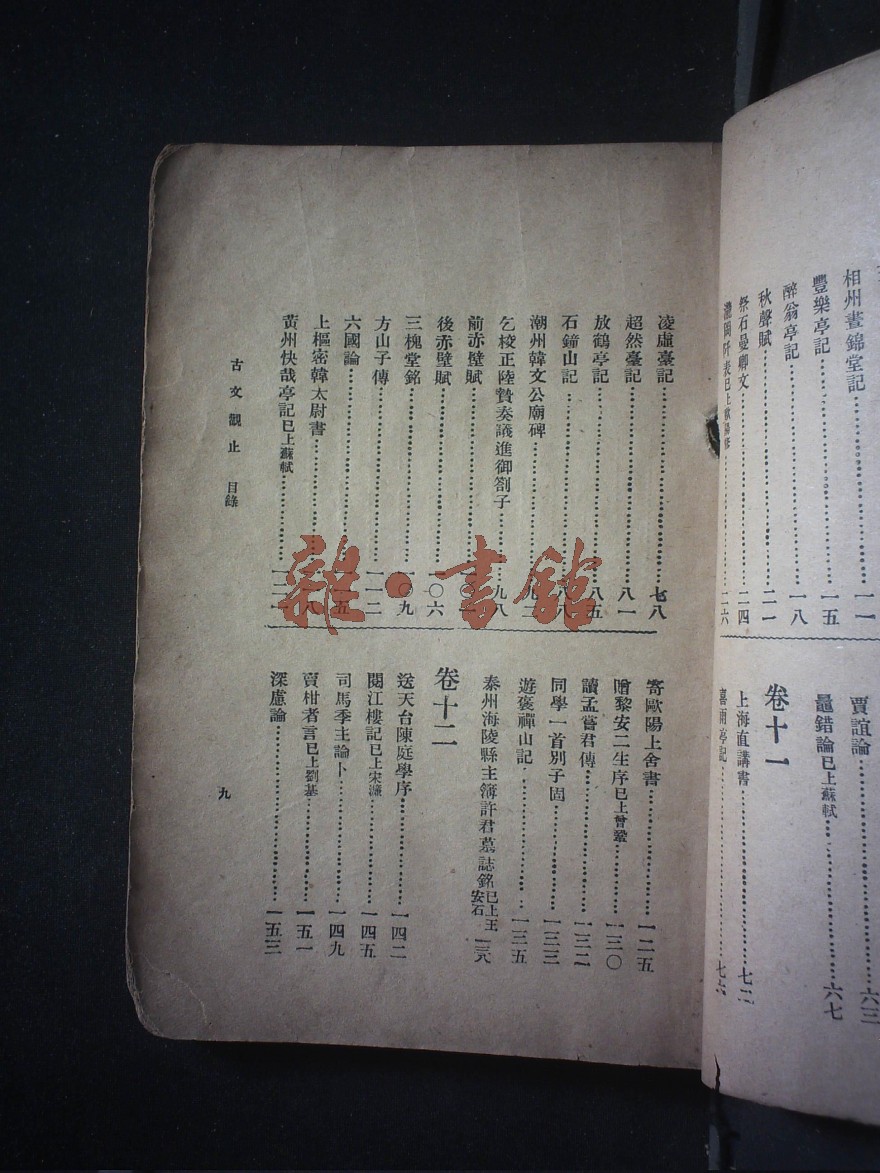 相州晝錦堂記……一一
豐樂亭記……一五
醉翁亭記……一八
秋聲賦……二一
祭石曼卿文……二四
瀧岡阡表已上歐陽修……二六
賈誼論……六三
鼂錯論已上蘇軾……六七
卷十一
上海直講書……七二
喜雨亭記……七六
凌虛臺記……七八
超然臺記……八一
放鶴亭記……八五
石鐘山記……八八
潮州韓文公廟碑……九二
乞校正陸贄奏議進御劄子……九八
前赤壁賦……
後赤壁賦……一〇六
三槐堂銘……一〇九
方山子傳……一一二
六國論……一一五
上樞密韓太尉書……一一八
黃州快哉亭記已上蘇軾……一二一
寄歐陽上舍書……一二五
贈黎安二生序已上曾鞏……一三〇
讀孟嘗君傳……一三二
同學一首別子固……一三三
遊褒禪山記……一三五
泰州海陵縣主簿許君墓誌銘已上王安石……一三八
卷十二
送天台陳庭學序……一四二
閱江樓記已上宋濂……一四五
司馬季主論卜……一四九
賣柑者言已上劉基……一五一
深慮論……一五三
古文觀止 目錄
九
雜·書館